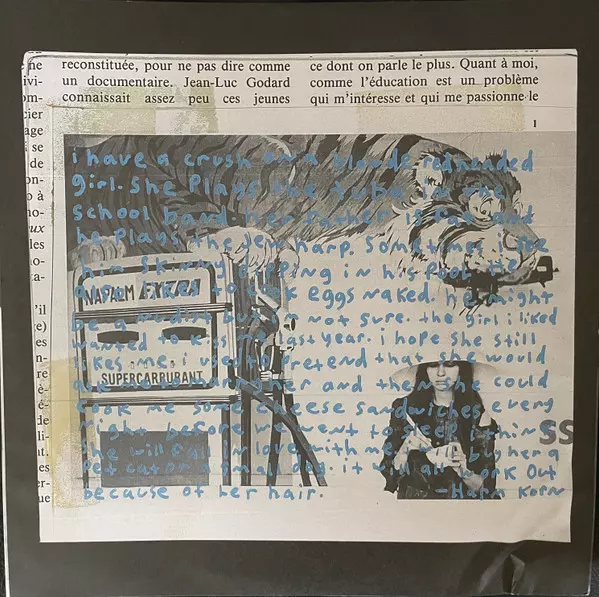 reconstituée, pour ne pas dire comme
un documentaire. Jean-Luc Godard
connaissait assez peu ces jeunes
ce dont on parle le plus. Quant à moi,
comme l'éducation est un problème
qui m'intéresse et qui me passionne le
1
cier
age
se
de
les
i have a crush on a blonde redheaded
girl. she plays the tuba in the
school band. her father is fat and
he plays the jew harp. sometimes i see
him skinny dipping in his pool. he
also likes to cook eggs naked. he might
be a nudist but i'm not sure. the girl i liked
wanted to kiss me last year. i hope she still
likes me. i used to pretend that she would
and then she could
cook me some cheese sandwiches every
night before we went to sleep. i think
she will fall in love with me. i will buy her a
pet cat or a small dog. it will all work out
because of her hair.
- Harm Korn
NAPALM EXTRA
SUPERCARBURANT
SS